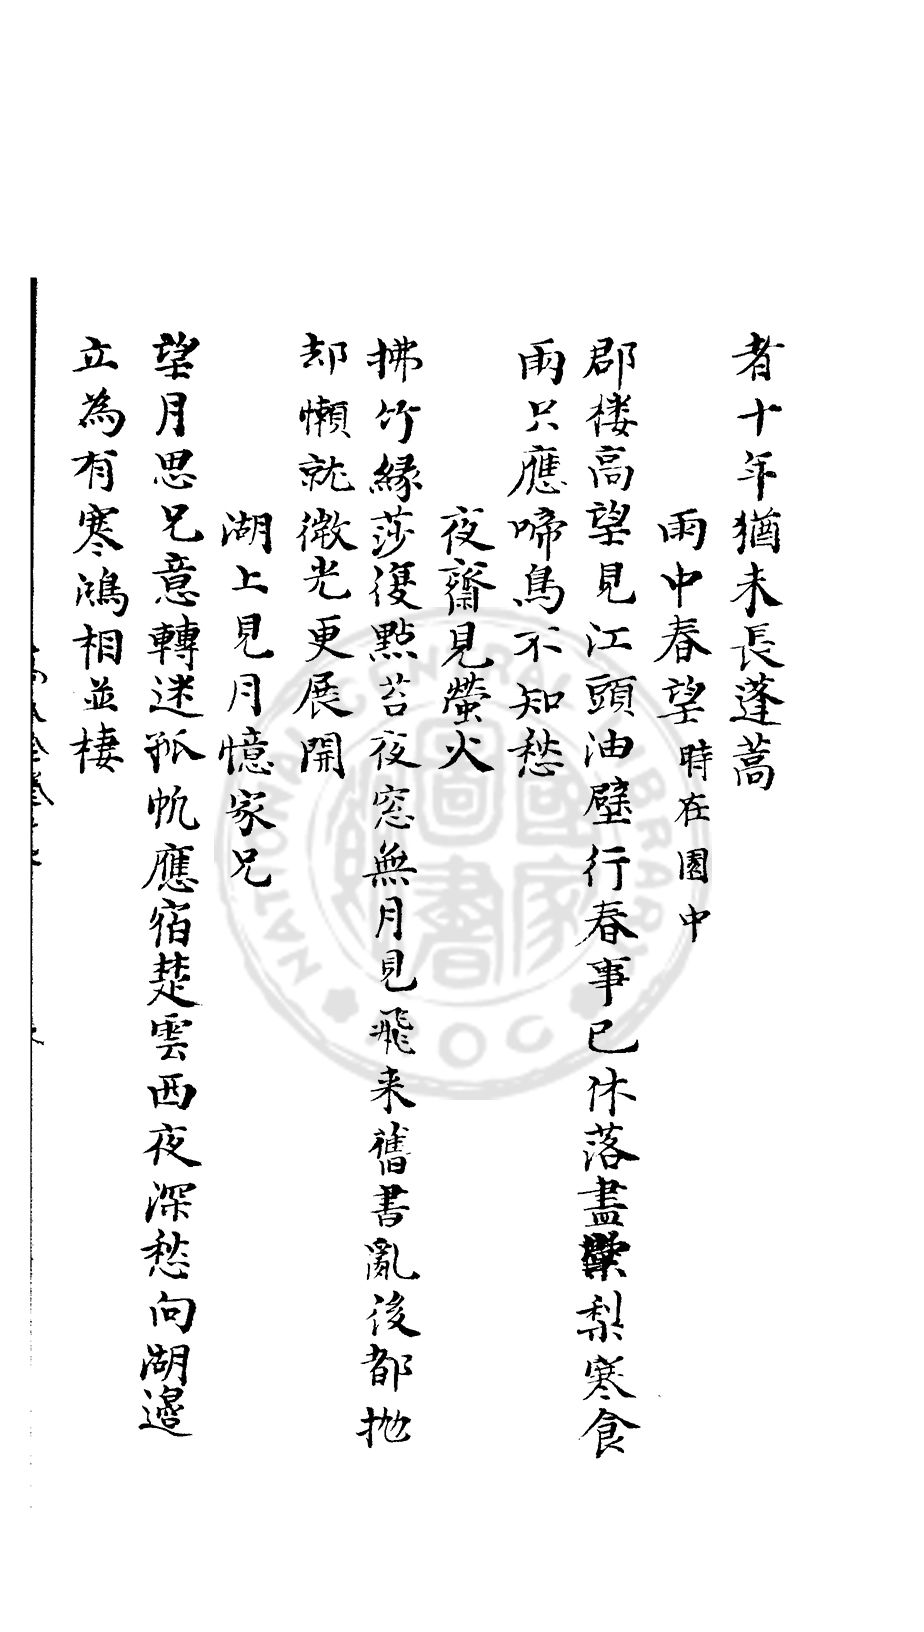 者十年猶未長蓬蒿
雨中春望時在園中
郡楼高望見江頭油壁行春事已休落盡梨寒食
雨只應啼鳥不知愁
夜齋見螢火
拂竹縁莎復點苔夜窓無月見飛来舊書亂後都抛
却懶就微光更展開
湖上見月憶家兄
望月思兄意轉迷孤帆應宿楚雲西夜深愁向湖邊
立為有寒鴻相並棲
NATIONAL CENTRAL LIBRARY
ROC
國家圖書館